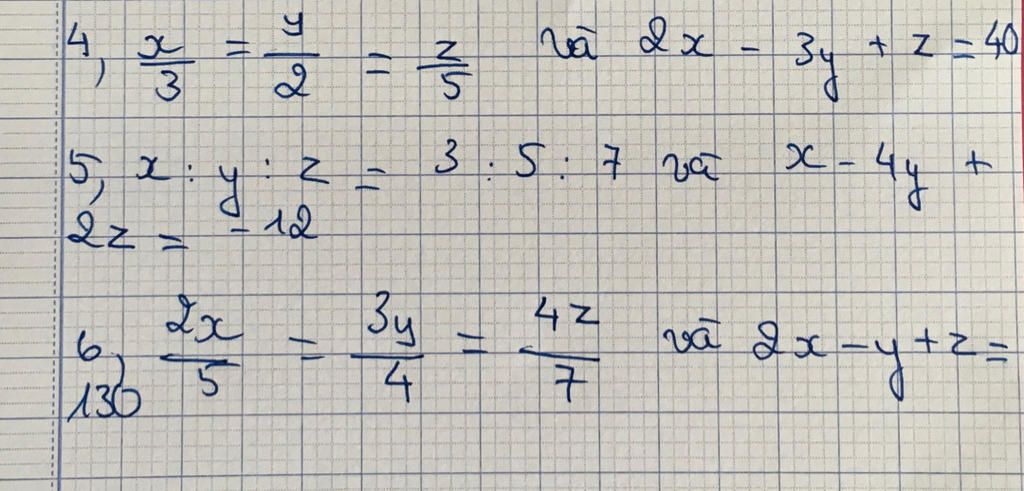 4, x/3 = y/2 = z/5 và 2x - 3y + z = 40
5, x : y : z = 3 : 5 : 7 và x - 4y +
2z = -12
6, 2x/5 = 3y/4 = 4z/7 và 2x - y + z =
130